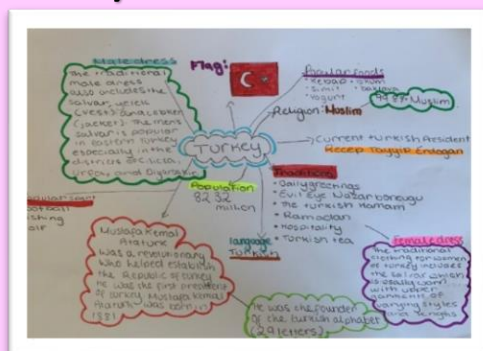 Male dress
The traditional
male dress
also includes the
salvar, yelek
(vest) and cebken
(jacket). The mens
salvar is popular
in eastern Turkey
especially in the
districts of
Urfa and
Flag:
Popular foods
• Kebab
• Simit • baklava
• Yogurt
Religion: Muslim
Muslim
TURKEY
→ Current turkish President
Recep Tayyip Erdogan
Traditions
• Daily greetings
• Evil Eye Nazar
• The Turkish Hamam
• Ramadan
• Hospitality
• Turkish tea
Population
82.32
million
language
Turkish
Mustafa Kemal
Ataturk
was a revolutionary
who helped establish
the Republic of Turkey
He was the first president
of Turkey. Mustafa Kemal
Ataturk was born in
1881
He was the founder
of the turkish alphabet
(29 letters)
Female dress
The traditional
clothing for women
of turkey includes
the salvar which
is usually worn
with upper
garments of
varying styles
and lengths